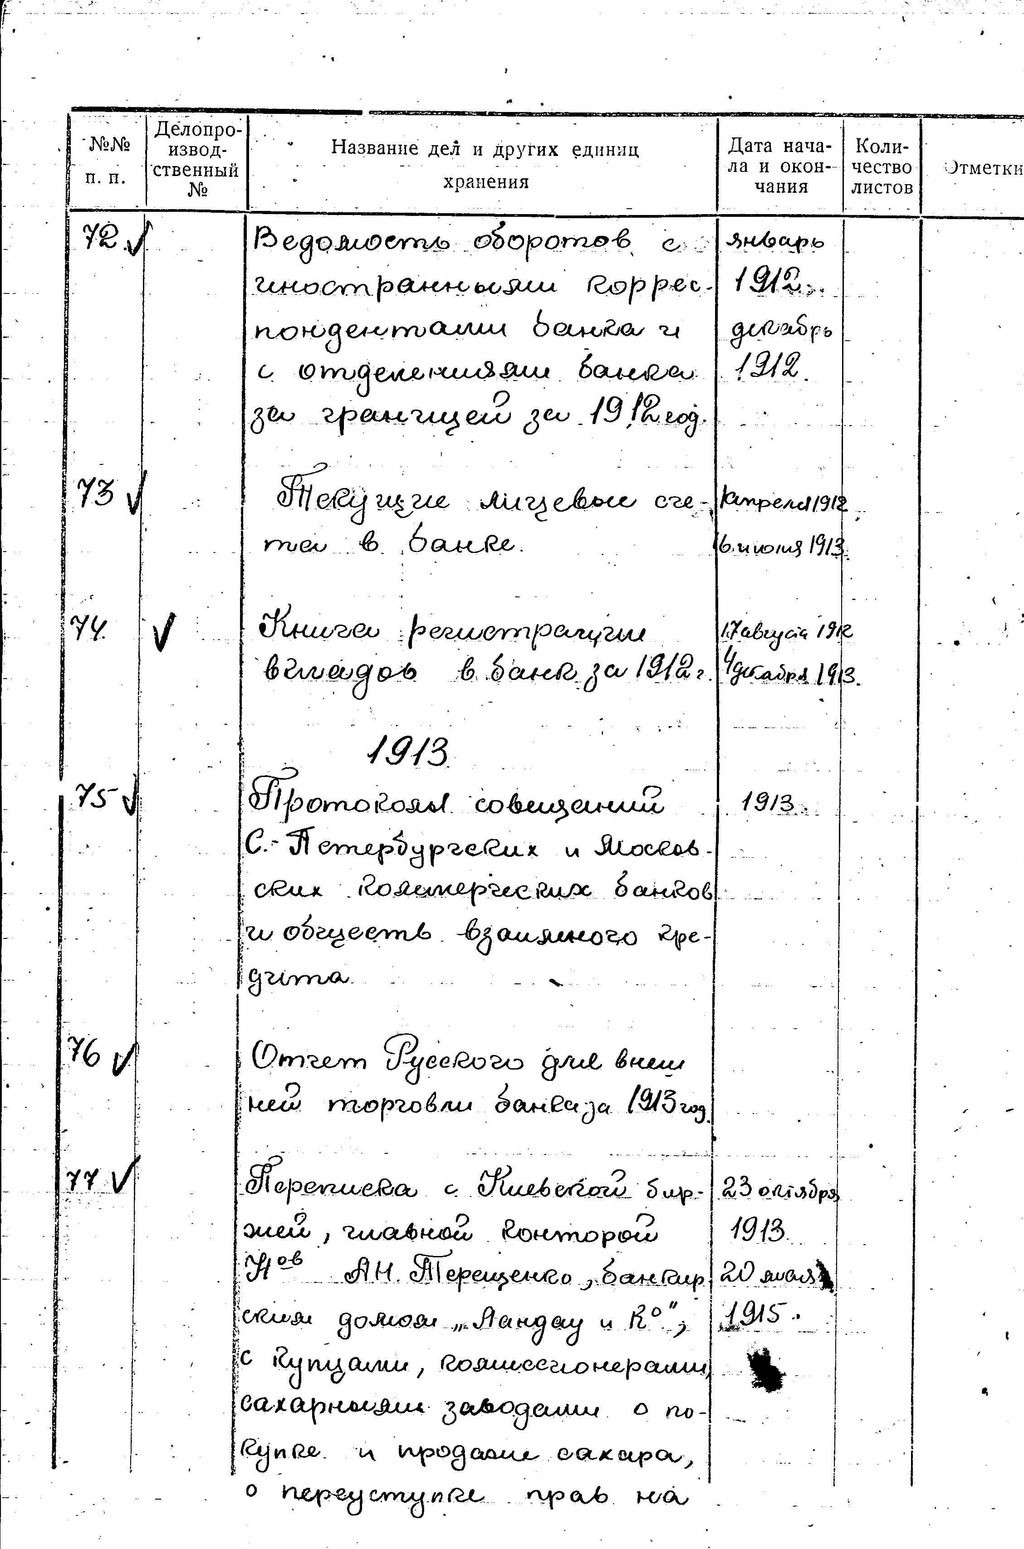 №№ п. п.
Делопроизводственный №
Название дел и других единиц хранения
Дата начала и окончания
Количество листов
Отметки
72. Ведомость оборотов с январь
иностранными коррес- 1912.
пондентами банка и декабрь
с отделениями банка 1912.
за границей за 1912 год.
73 Текущие лицевые сче- 1 апреля 1912
та в банке. 16 июля 1913.
74. Книга регистрации 17 августа 1912
вкладов в банк за 1912 г. 4 декабря 1913.
1913
75 Протоколы совещаний 1913.
С.-Петербургских и Москов-
ских коммерческих банков
и обществ взаимного кре-
дита.
76 Отчет Русского для внеш
ней торговли банка за 1913 год.
77 Переписка с Киевской бир- 23 октября
жей, главной конторой 1913.
Н-ов А.Н. Терещенко, банкир 20 мая
ским домом „Ландау и К°", 1915.
с купцами, комиссионерами,
сахарными заводами о по-
купке и продаже сахара,
о переуступке прав на